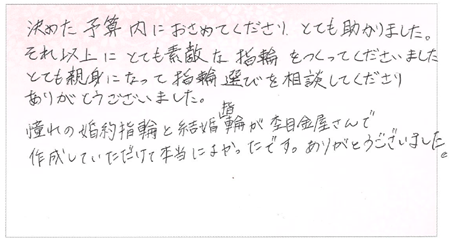 決めた予算内におさめてくださり、とても助かりました。
それ以上にとても素敵な指輪をつくってくださいました
とても親身になって指輪選びを相談してくださり
ありがとうございました。
憧れの婚約指輪と結婚指輪が杢目金屋さんで
作成していただけて本当によかったです。ありがとうございました。